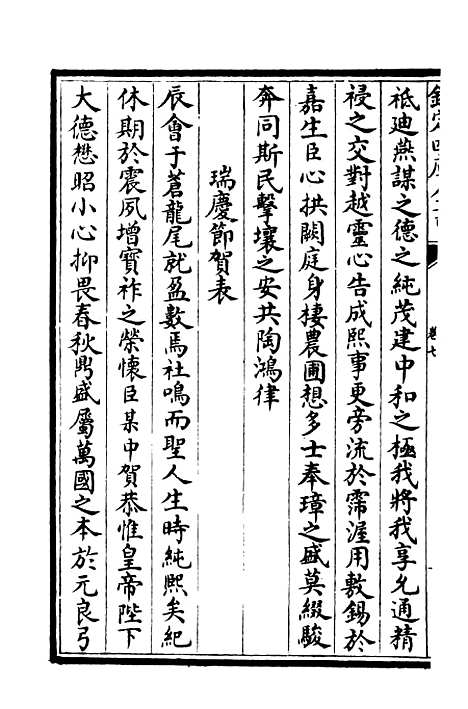 祗迪燕謀之德之純茂建中和之極我將我享允通精
祲之交對越靈心告成熙事更旁流於霈渥用敷錫於
嘉生臣心拱闕庭身棲農圃想多士奉璋之盛莫綴駿
奔同斯民擊壤之安共陶鴻律
瑞慶節賀表
辰會于蒼龍尾就盈數焉社鳴而聖人生時純熙矣紀
休期於震夙增寳祚之榮懷臣某中賀恭惟皇帝陛下
大德懋昭小心抑畏春秋鼎盛屬萬國之本於元良弓